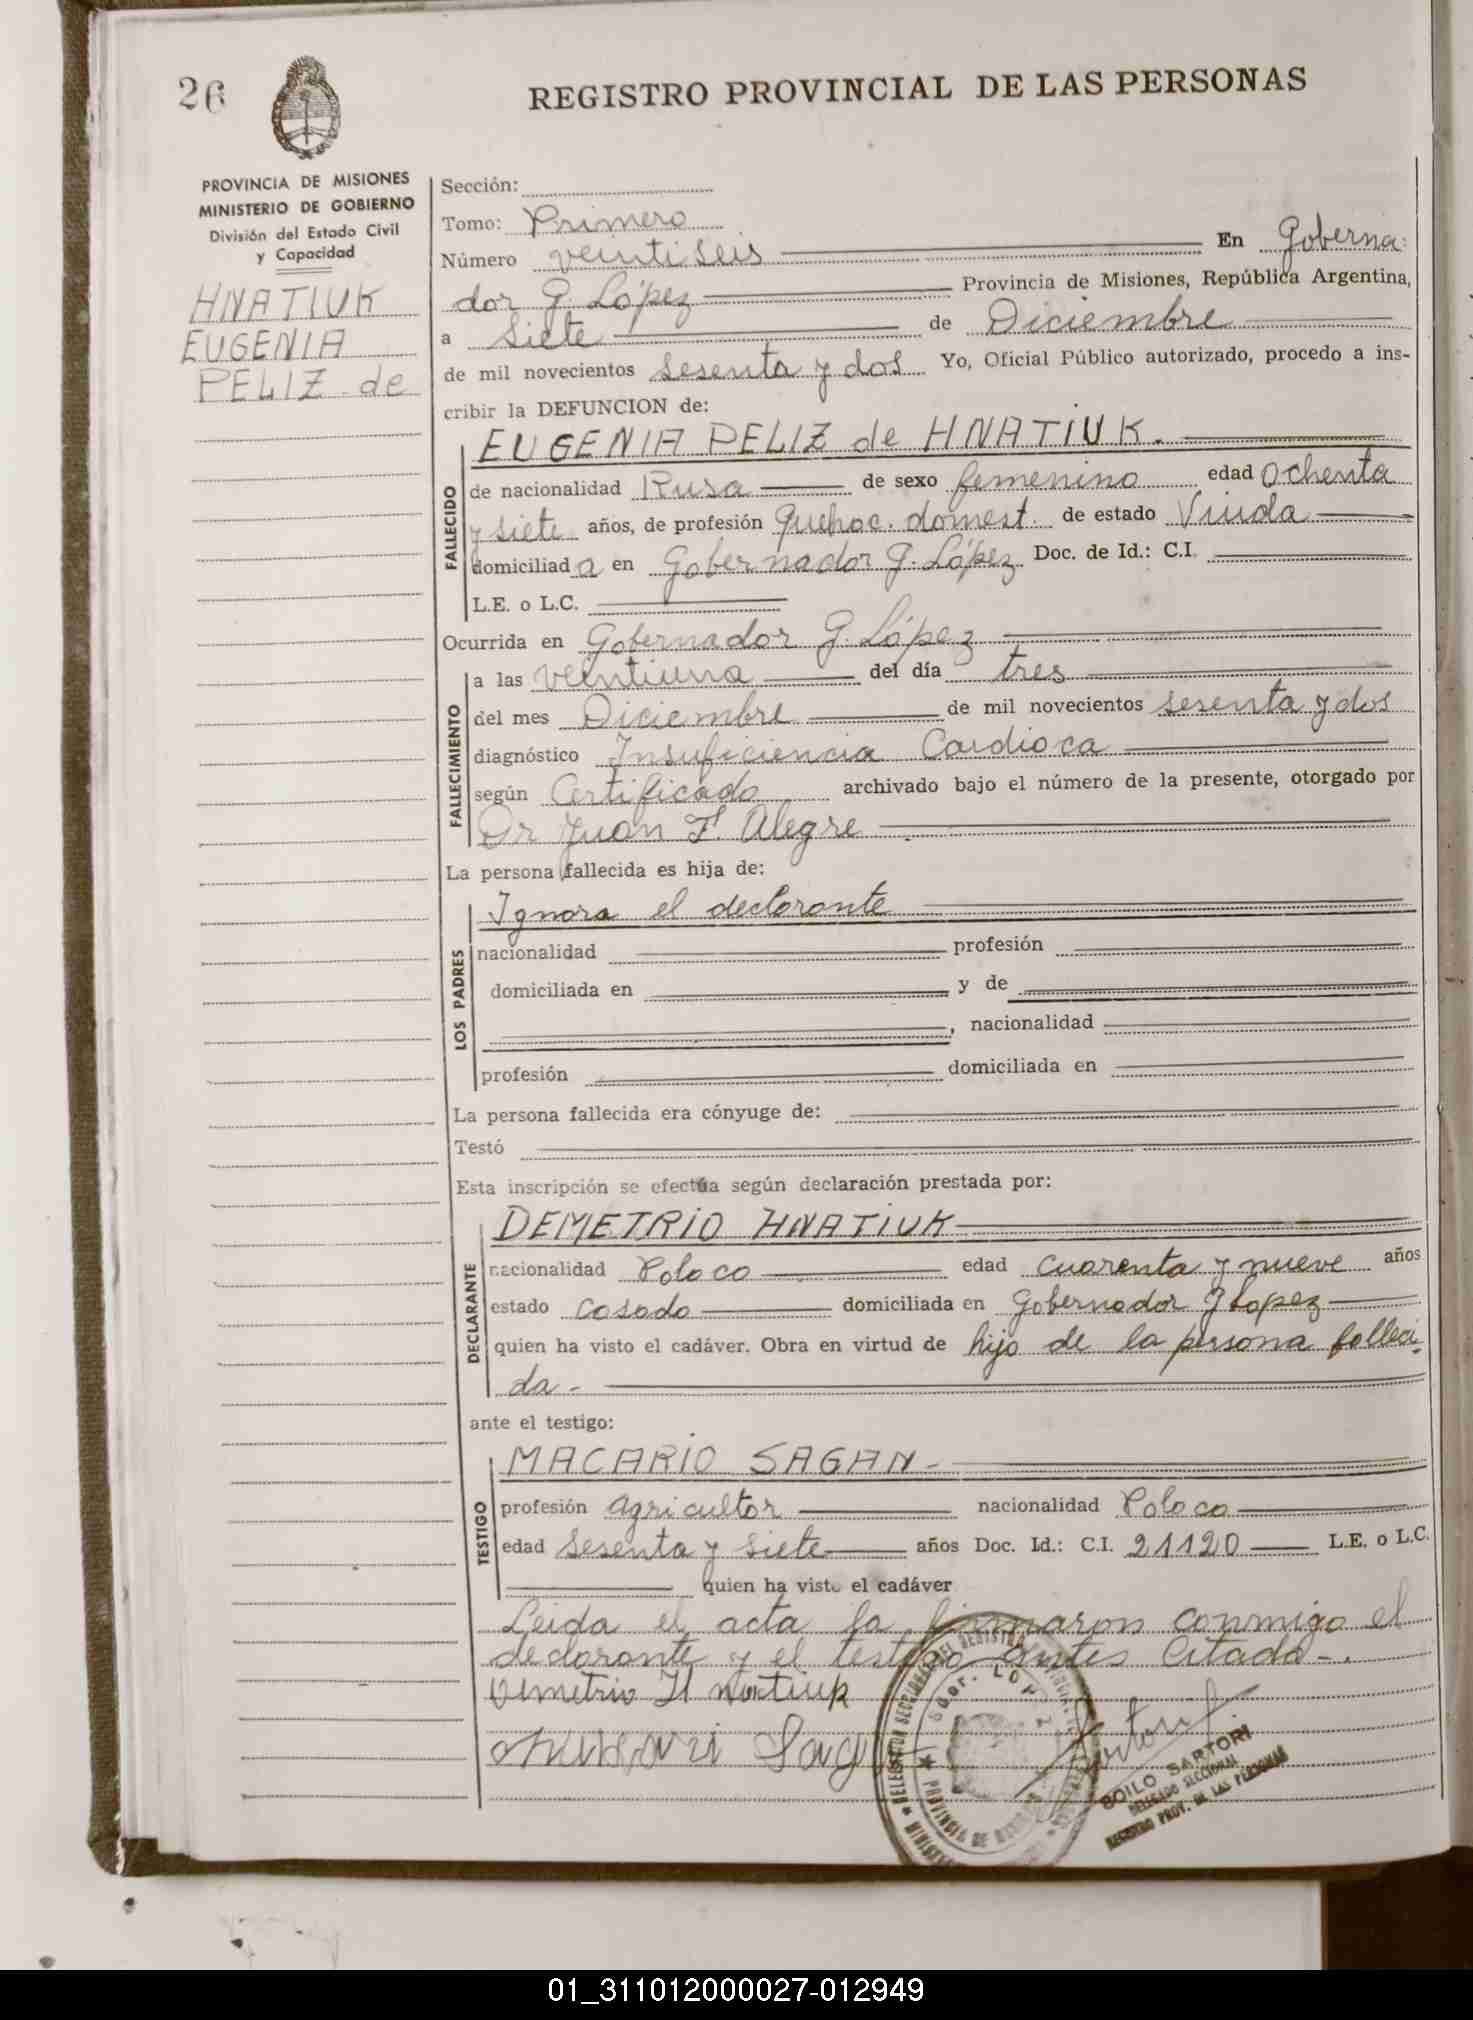 26
REGISTRO PROVINCIAL DE LAS PERSONAS
PROVINCIA DE MISIONES
MINISTERIO DE GOBIERNO
División del Estado Civil
y Capacidad
HNATIUK
EUGENIA
PELIZ de
Sección:
Tomo: Primero
Número veintiseis En Goberna
dor G. López Provincia de Misiones, República Argentina,
a Siete de Diciembre
de mil novecientos sesenta y dos Yo, Oficial Público autorizado, procedo a ins-
cribir la DEFUNCION de:
EUGENIA PELIZ de HNATIUK.
FALLECIDO
de nacionalidad Rusa de sexo femenino edad Ochenta
y siete años, de profesión Quehac. domest. de estado Viuda
domiciliada en Gobernador G. López Doc. de Id.: C.I.
L.E. o L.C.
Ocurrida en Gobernador G. López
FALLECIMIENTO
a las veintiuna del día tres
del mes Diciembre de mil novecientos sesenta y dos
diagnóstico Insuficiencia Cardioca
según Certificado archivado bajo el número de la presente, otorgado por
Dr Juan F. Alegre
La persona fallecida es hija de:
LOS PADRES
Ignora el declorante
nacionalidad profesión
domiciliada en y de
, nacionalidad
profesión domiciliada en
La persona fallecida era cónyuge de:
Testó
Esta inscripción se efectúa según declaración prestada por:
DECLARANTE
DEMETRIO HNATIUK
nacionalidad Poloco edad Cuarenta y nueve años
estado Casado domiciliada en Gobernador G Lopez
quien ha visto el cadáver. Obra en virtud de hijo de la persona falleci
da-
ante el testigo:
TESTIGO
MACARIO SAGAN-
profesión agricultor nacionalidad Poloca
edad Sesenta y siete años Doc. Id.: C.I. 21120 L.E. o L.C.
quien ha visto el cadáver
Leida el acta la firmaron conmigo el
declorante y el testigo antes Citado-.
Demetrio Hnatiuk
Sag
Sartori
GDOR. LOPEZ
PROVINCIA DE MISIONES
SARTORI
DELEGADO SECCIONAL
REGISTRO PROV. DE LAS PERSONAS
01_311012000027-012949